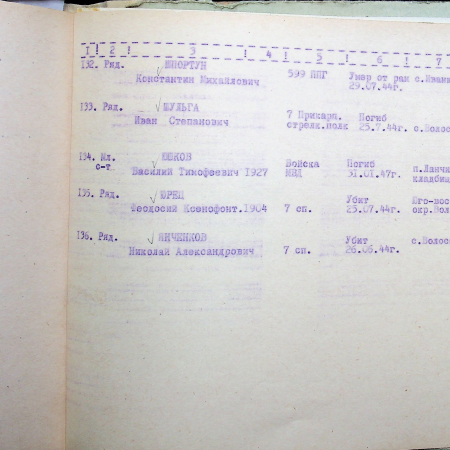 1 ! 2 ! 3 ! 4 ! 5 ! 6 ! 7
132. Ряд. ШПОРТУН
Константин Михайлович 599 ППГ Умер от ран с.Иван
29.07.44г.
133. Ряд. ШУЛЬГА
Иван Степанович 7 Прикарп. Погиб
стрелк.полк 25.7.44г. с.Волос
134. Мл. ЮШКОВ Войска Погиб п.Ланч
с-т Василий Тимофеевич 1927 МВД 31.01.47г. кладбищ
135. Ряд. ЮРЕЦ Убит Юго-вос
Феодосий Ксенофонт.1904 7 сп. 25.07.44г. окр.Воло
136. Ряд. ЯНЧЕНКОВ Убит с.Волос
Николай Александрович 7 сп. 26.06.44г.